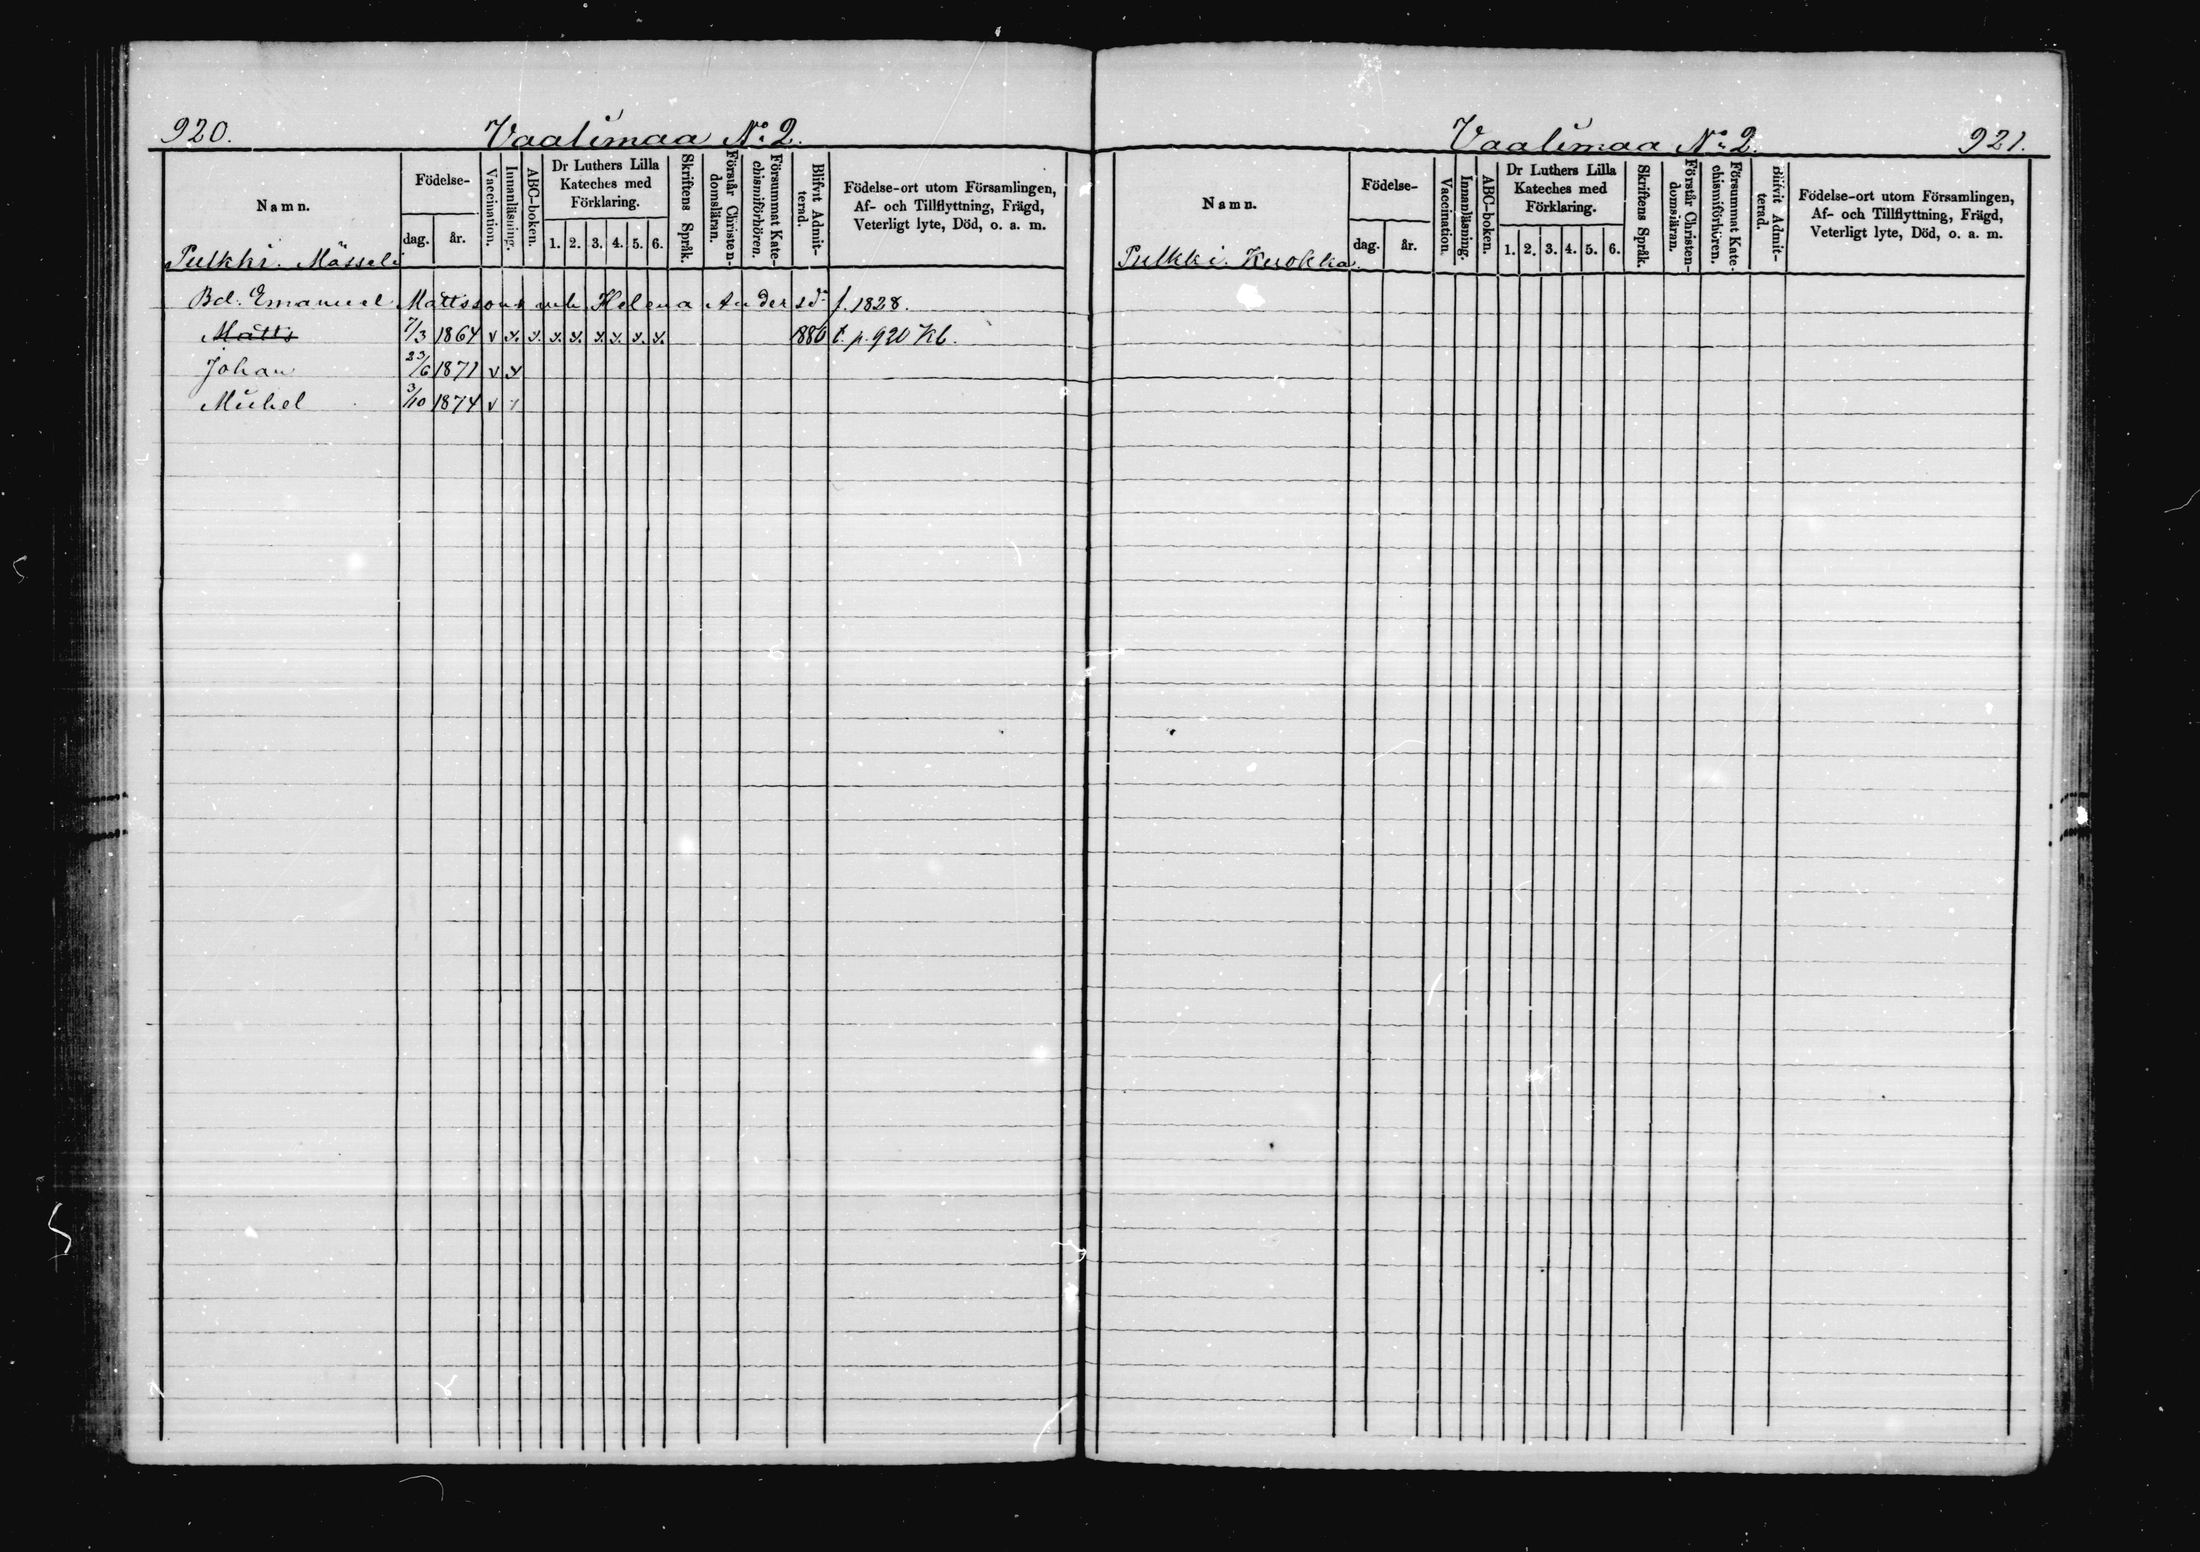 920.
Vaalimaa No 2.
Namn.
Födelse-
dag.
år.
Vaccination.
Innanläsning.
ABC-boken.
Dr Luthers Lilla
Kateches med
Förklaring.
1. 2. 3. 4. 5. 6.
Skriftens Språk.
Förstår Christen-
domsläran.
Försummat Kate-
chismiförhören.
Blifvit Admit-
terad.
Födelse-ort utom Församlingen,
Af- och Tillflyttning, Frägd,
Veterligt lyte, Död, o. a. m.
Pulkki. Mässeli
Bd. Emanuel Mattsson Helena Andersdr f. 1828.
Matts 7/3 1864 v x. x. x. x. x. x. x. x. 1880 t. p. 920 Kb.
Johan 23/6 1871 v x
Michel 3/10 1874 v
Vaalimaa No 2.
921.
Namn.
Födelse-
dag.
år.
Vaccination.
Innanläsning.
ABC-boken.
Dr Luthers Lilla
Kateches med
Förklaring.
1. 2. 3. 4. 5. 6.
Skriftens Språk.
Förstår Christen-
domsläran.
Försummat Kate-
chismiförhören.
Blifvit Admit-
terad.
Födelse-ort utom Församlingen,
Af- och Tillflyttning, Frägd,
Veterligt lyte, Död, o. a. m.
Pulkki. Kuokka.